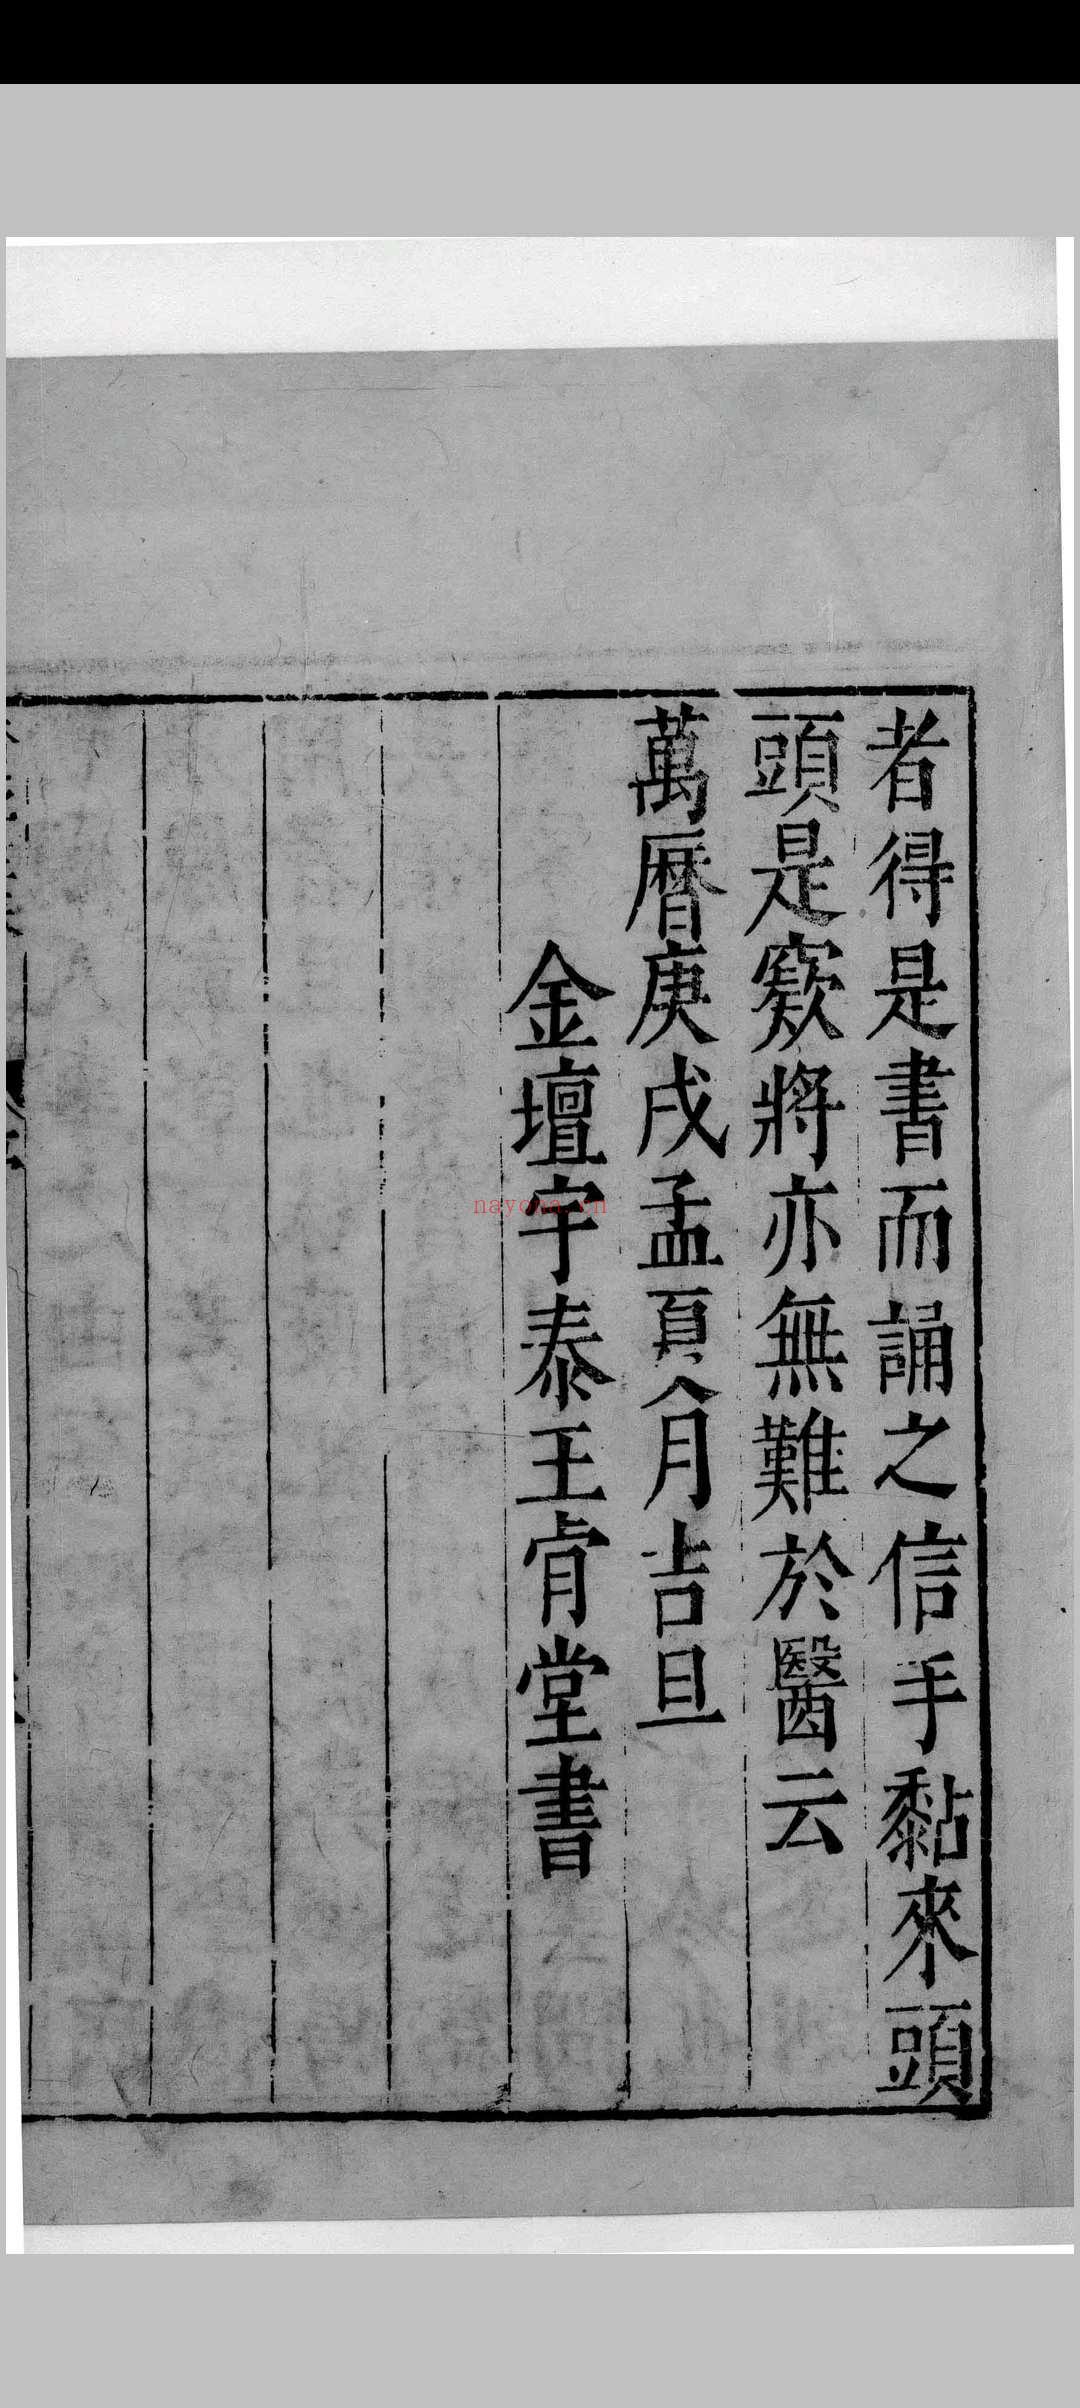 者得是書而誦之信手黏來頭
頭是窾將亦無難於醫云
萬曆庚戌孟夏月吉旦
金壇宇泰王肎堂書
nayona.cn